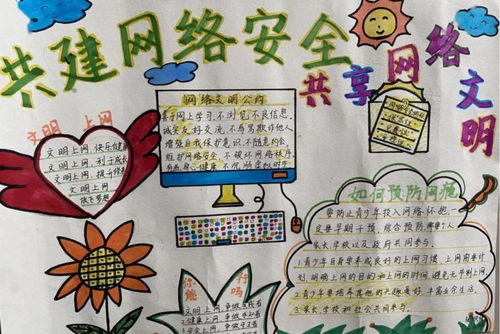 共建网络安全
共享网络
文明
文明 上网
文明上网,快乐健康
文明上网,利于成长
文明上网
放飞梦想
网络文明公约
善于网上学习,不浏览不良信息
诚实友好交流,不侮辱欺诈他人
增强自我保护意识,不随意约会
维护网络安全,不破坏网络秩序
有益身心健康,不沉溺虚拟时空
如何预防网瘾
要防止青少年投入网络怀抱,
家长学校以及政府共同参与。
1.青少年自身要养成良好的上网习惯,上网前要计
划,明确上网的目的和上网的时间,避免无节制上网
2.青少年要培养其他的兴趣爱好,丰富业余生活。
3.家长学校和社会共同参与。
你 行吗
能
文明上网,争做